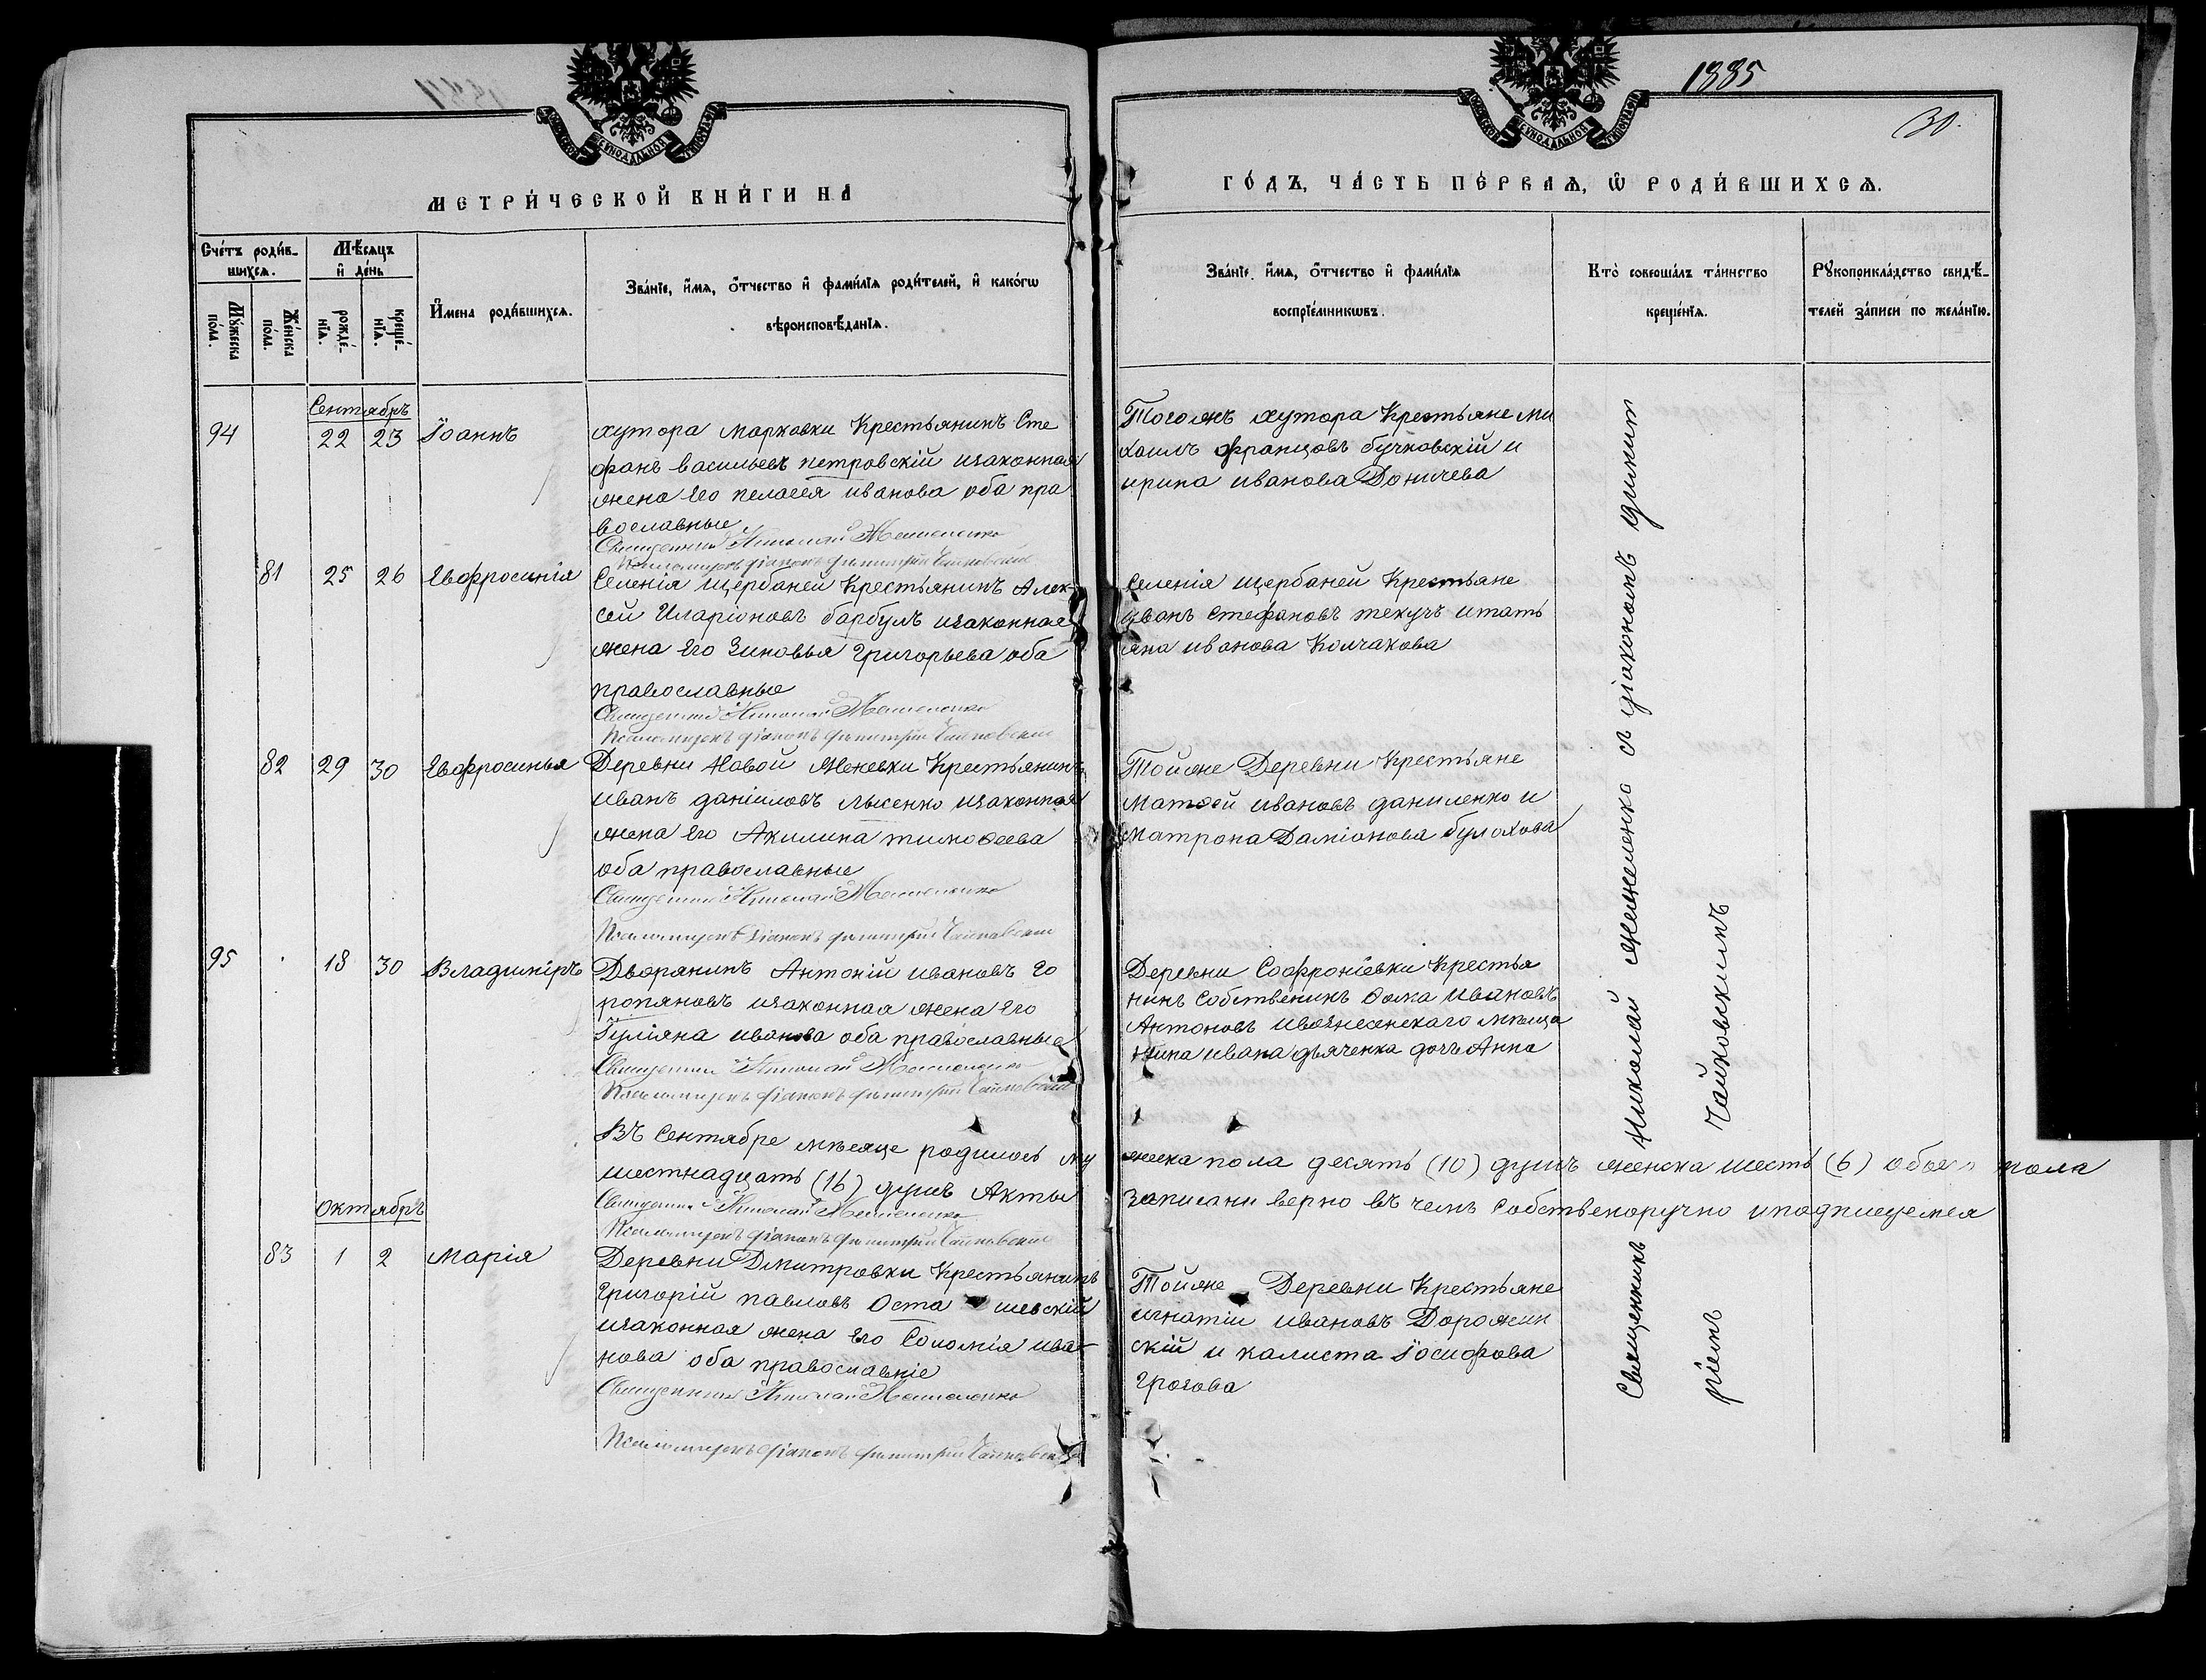 1885
30.
МЕТРИ́ЧЕСКОЙ КНИ́ГИ НА
ГО́ДЪ, ЧА́СТЬ ПЕ́РВАѦ, Ѡ РОДИ́ВШИХСѦ.
Сче́тъ роди́в-
шихсѧ.
Мꙋ́жеска
по́ла.
Же́нска
по́ла.
Мѣ́сѧцъ
и де́нь
рожде́-
нїѧ.
креще́-
нїѧ.
И҆мена роди́вшихсѧ.
Зва́нїе, и҆́мѧ, о҆́тчество и҆ фами́лїѧ роди́телей, и҆ како́гѡ
вѣроисповѣ́данїѧ.
Зва́нїе, и҆́мѧ, о҆́тчество и҆ фами́лїѧ
воспрїе́мникѡвъ.
Кто̀ соверша́лъ та́инство
креще́нїѧ.
Рꙋкоприкла́дство свидѣ́-
телей за́писи по жела́нїю.
Сентябрь
94 22 23 Іоаннъ
хутора Марковки Крестьянинъ Сте
фанъ васильевъ петровскій изаконная
жена его пелагея иванова оба пра
вославные
Священникъ Николай Межененко
Псаломщикъ діаконъ Димитрій Чайковскій
Тогожъ хутора Крестьяне Ми
хаилъ францовъ бучковскій и
ирина иванова Доничева
81 25 26 Евфросинія
Селенія Щербаней Крестьянинъ Алек-
сей Иларіоновъ барбулъ изаконная
жена его Зиновья Григорьева оба
православные
Священникъ Николай Межененко
Псаломщикъ діаконъ Димитрій Чайковскій
Селенія Щербаней Крестьяне
Иванъ Стефановъ текучъ итать
яна иванова Колчакова
82 29 30 Евфросинья
Деревни Новой Женевки Крестьянинъ
иванъ даніиловъ лысенко изаконная
жена его Акилина тимоѳеева
оба православные
Священникъ Николай Межененко
Псаломщикъ діаконъ Димитрій Чайковскій
Тойже Деревни Крестьяне
Матѳей ивановъ даниленко и
Матрона Даміанова булохова
95 18 30 Владиміръ
Дворянинъ Антоній ивановъ го
ропяновъ изаконная жена его
Іуліяна иванова оба православные
Священникъ Николай Межененко
Псаломщикъ діаконъ Димитрій Чайковскій
Деревни Софроніевки Крестья
нинъ собственикъ Ѳома ивановъ
Антоновъ ивознесенскаго мѣща
нина ивана дьяченка дочь Анна
Въ Сентябре мѣсяце родилось му жеска пола десять (10) душъ женска шесть (6) обоего пола
шестнадцать (16) душъ Акты записани верно въ чемъ собственоручно иподписуемся
Священникъ Николай Межененко
Псаломщикъ діаконъ Димитрій Чайковскій
Октябрь
83 1 2 Марія
Деревни Дмитровки Крестьянинъ
Григорій павловъ Оста шевскій
изаконная жена его Соломія ива-
нова оба православніе
Священникъ Николай Межененко
Псаломщикъ діаконъ Димитрій Чайковскій
Тойже Деревни Крестьяне
игнатій ивановъ Дорожин
скій и калиста Іосифова
Грозова
Священникъ Николай межененко съ діакономъ димит
ріемъ Чайковскимъ